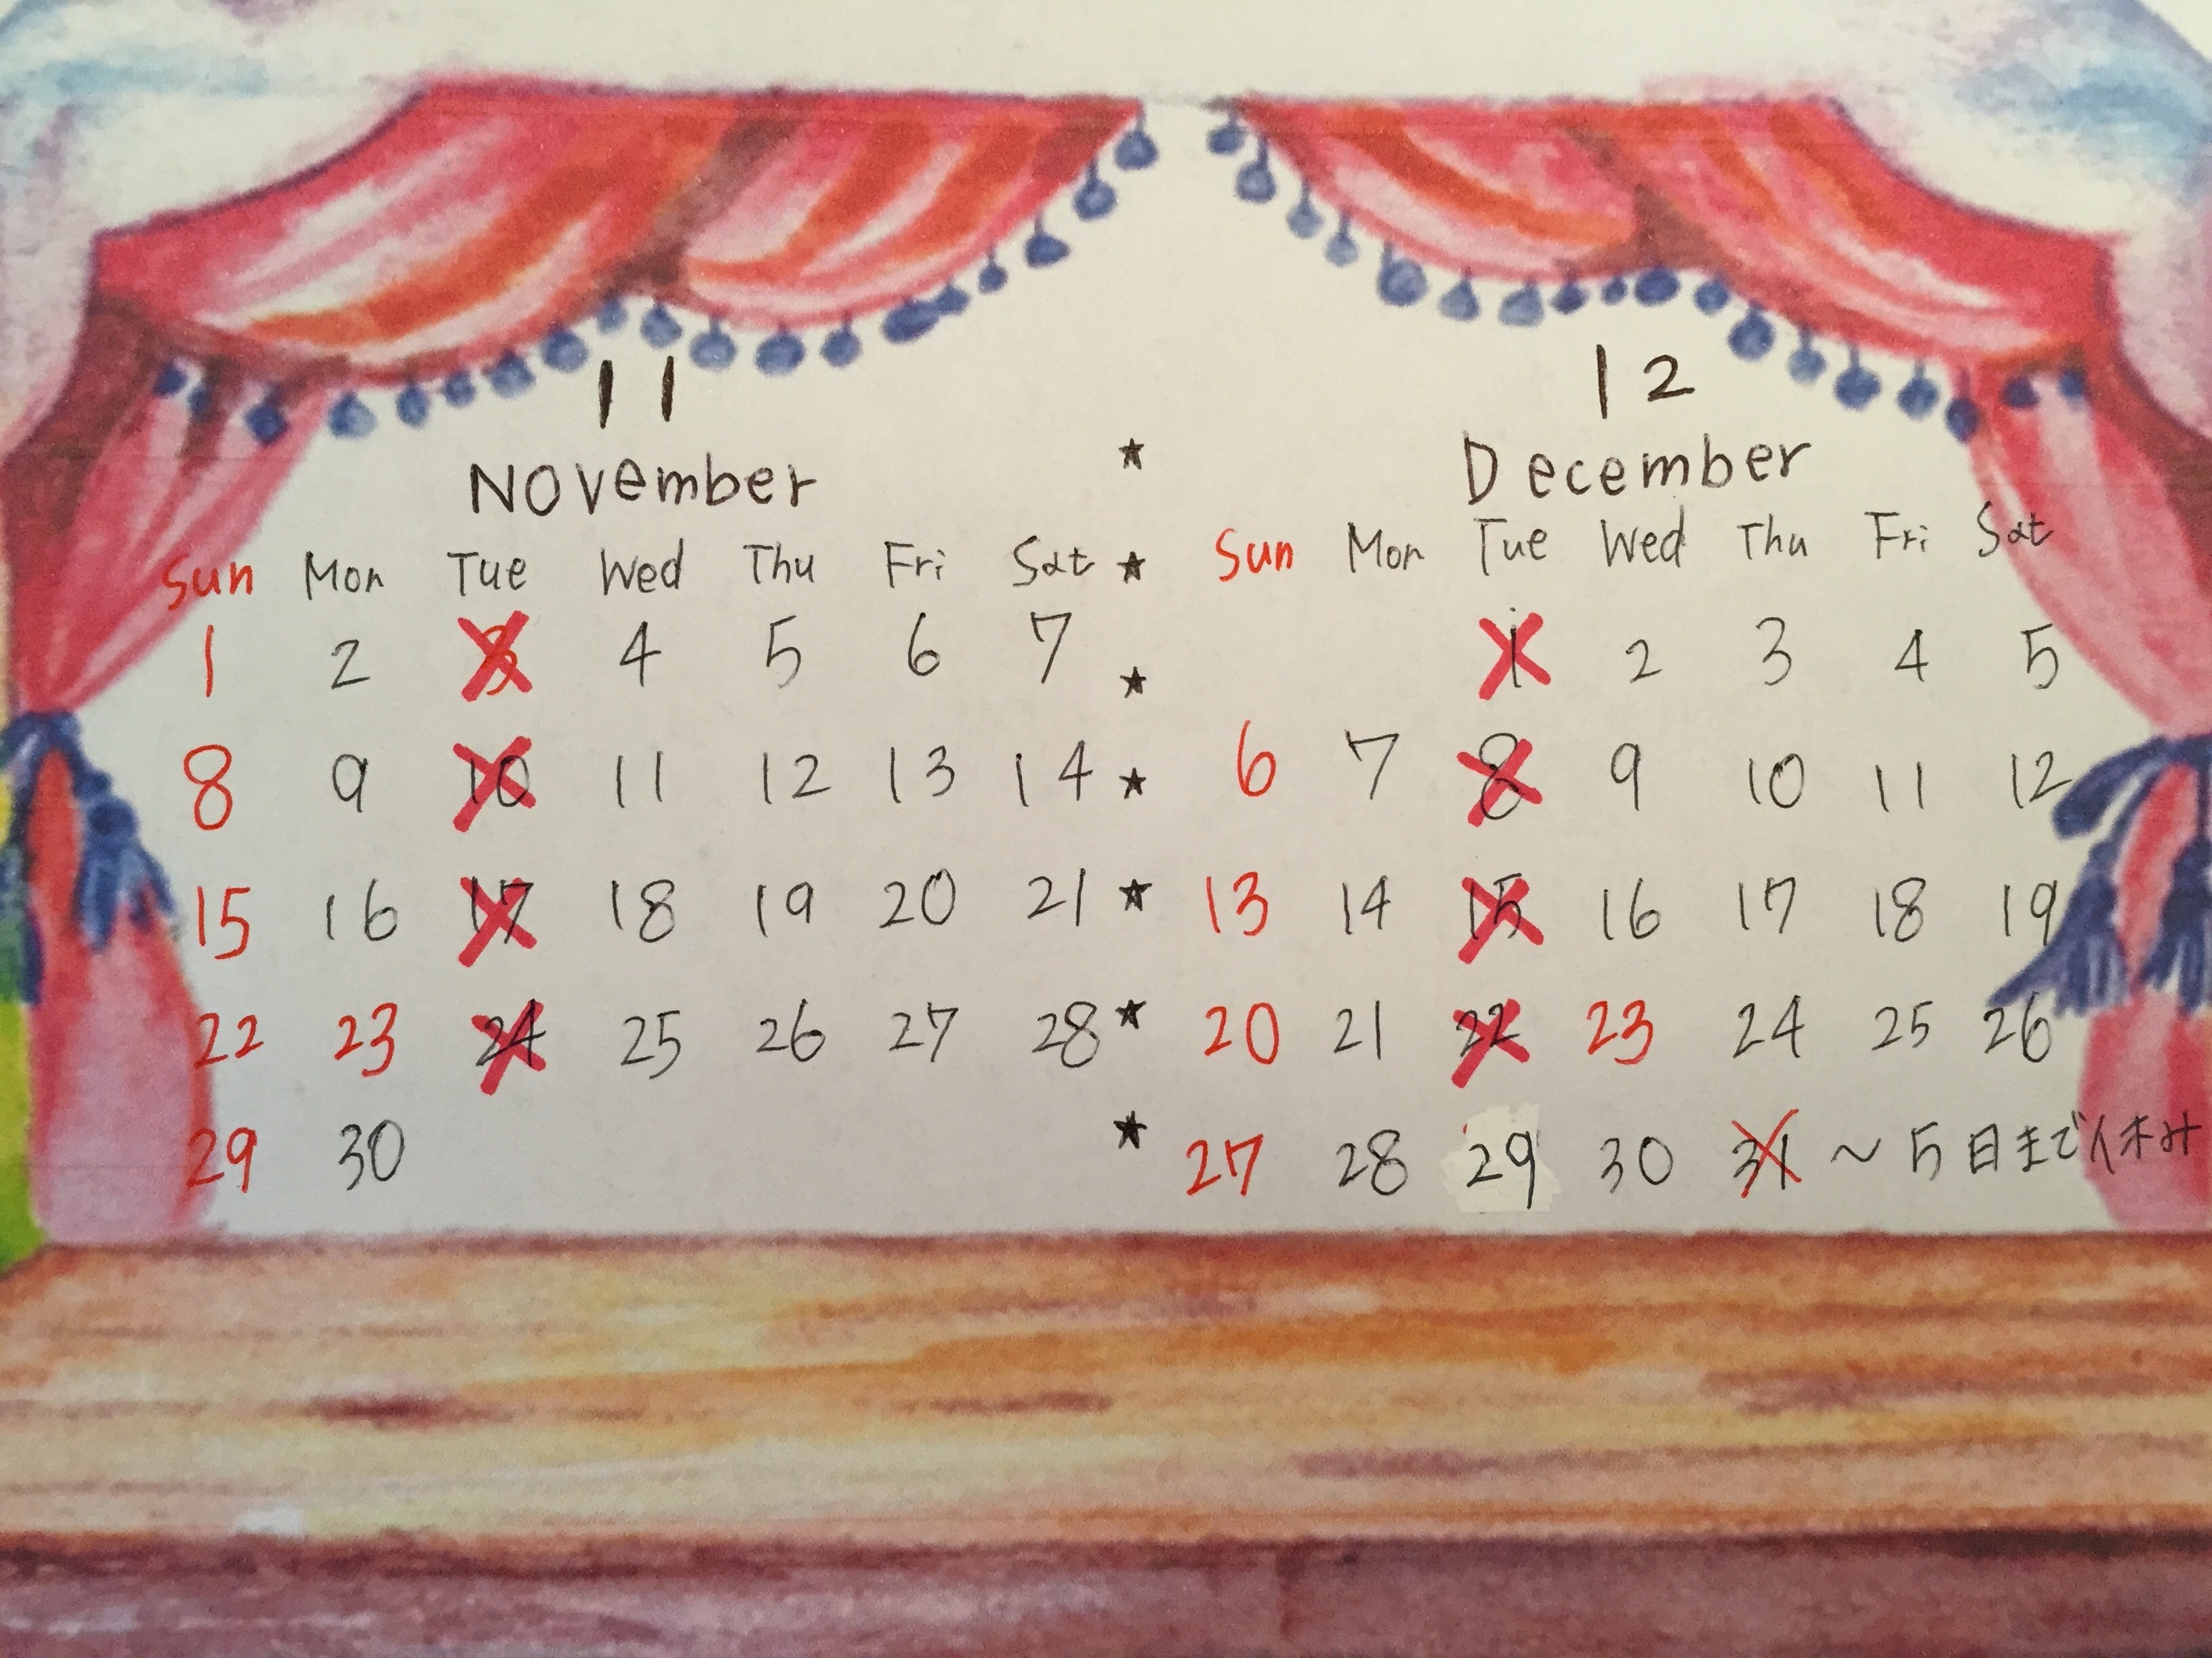 11
November
Sun Mon Tue Wed Thu Fri Sat
1 2 3 4 5 6 7
8 9 10 11 12 13 14
15 16 17 18 19 20 21
22 23 24 25 26 27 28
29 30
12
December
Sun Mon Tue Wed Thu Fri Sat
1 2 3 4 5
6 7 8 9 10 11 12
13 14 15 16 17 18 19
20 21 22 23 24 25 26
27 28 29 30 31 〜5日まで休み